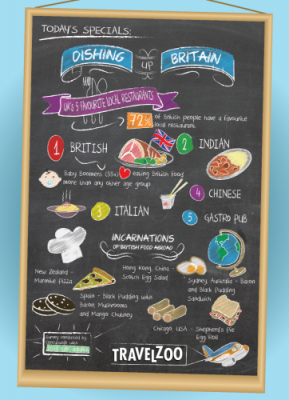 TODAY'S SPECIALS:
DISHING
UP
BRITAIN
UK'S 5 FAVOURITE LOCAL RESTAURANTS
72%
of British people have a favourite
local restaurant
1
BRITISH
2
INDIAN
Baby Boomers (55+)
eating British food
more than any other age group
4
CHINESE
3
ITALIAN
5
GASTRO PUB
INCARNATIONS
OF BRITISH FOOD ABROAD
New Zealand -
Marmite Pizza
Hong Kong, China -
Scotch Egg Salad
Sydney, Australia - Bacon
and Black Pudding
Sandwich
Spain - Black Pudding with
Bacon, Mushrooms
and Mango Chutney
Chicago, USA - Shepherd's Pie
Egg Roll
TRAVELZOO